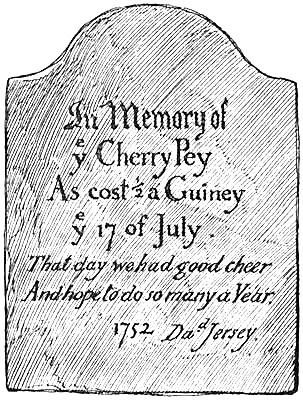 In Memory of
yᵉ Cherry Pey
As cost ½ a Guiney
yᵉ 17 of July.
That day we had good cheer
And hope to do so many a Year.
1752 Daᵈ Jersey.